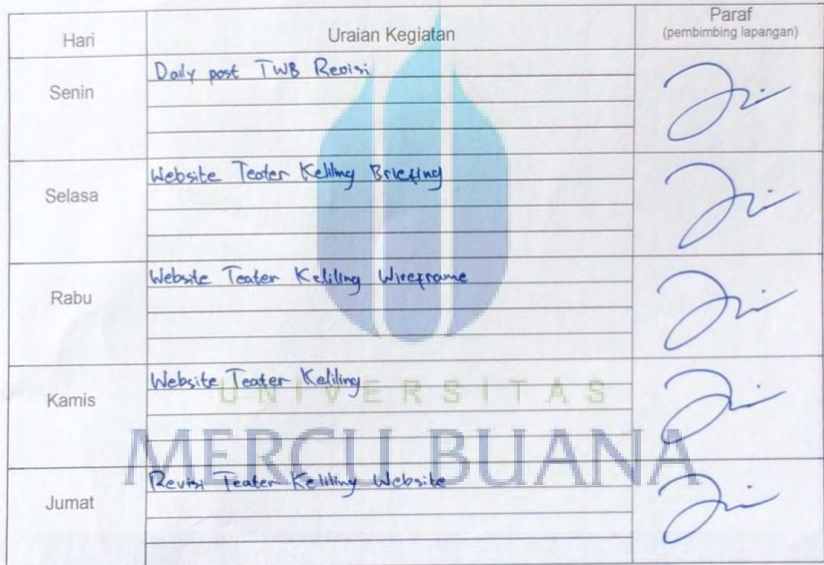 Hari Uraian Kegiatan Paraf
(pembimbing lapangan)
Senin
Daily post TWB Revisi
Selasa
Website Teater Keliling Briefing
Rabu
Website Teater Keliling Wireframe
Kamis
Website Teater Keliling
UNIVERSITAS
MERCU BUANA
Jumat
Revisi Teater Keliling Website